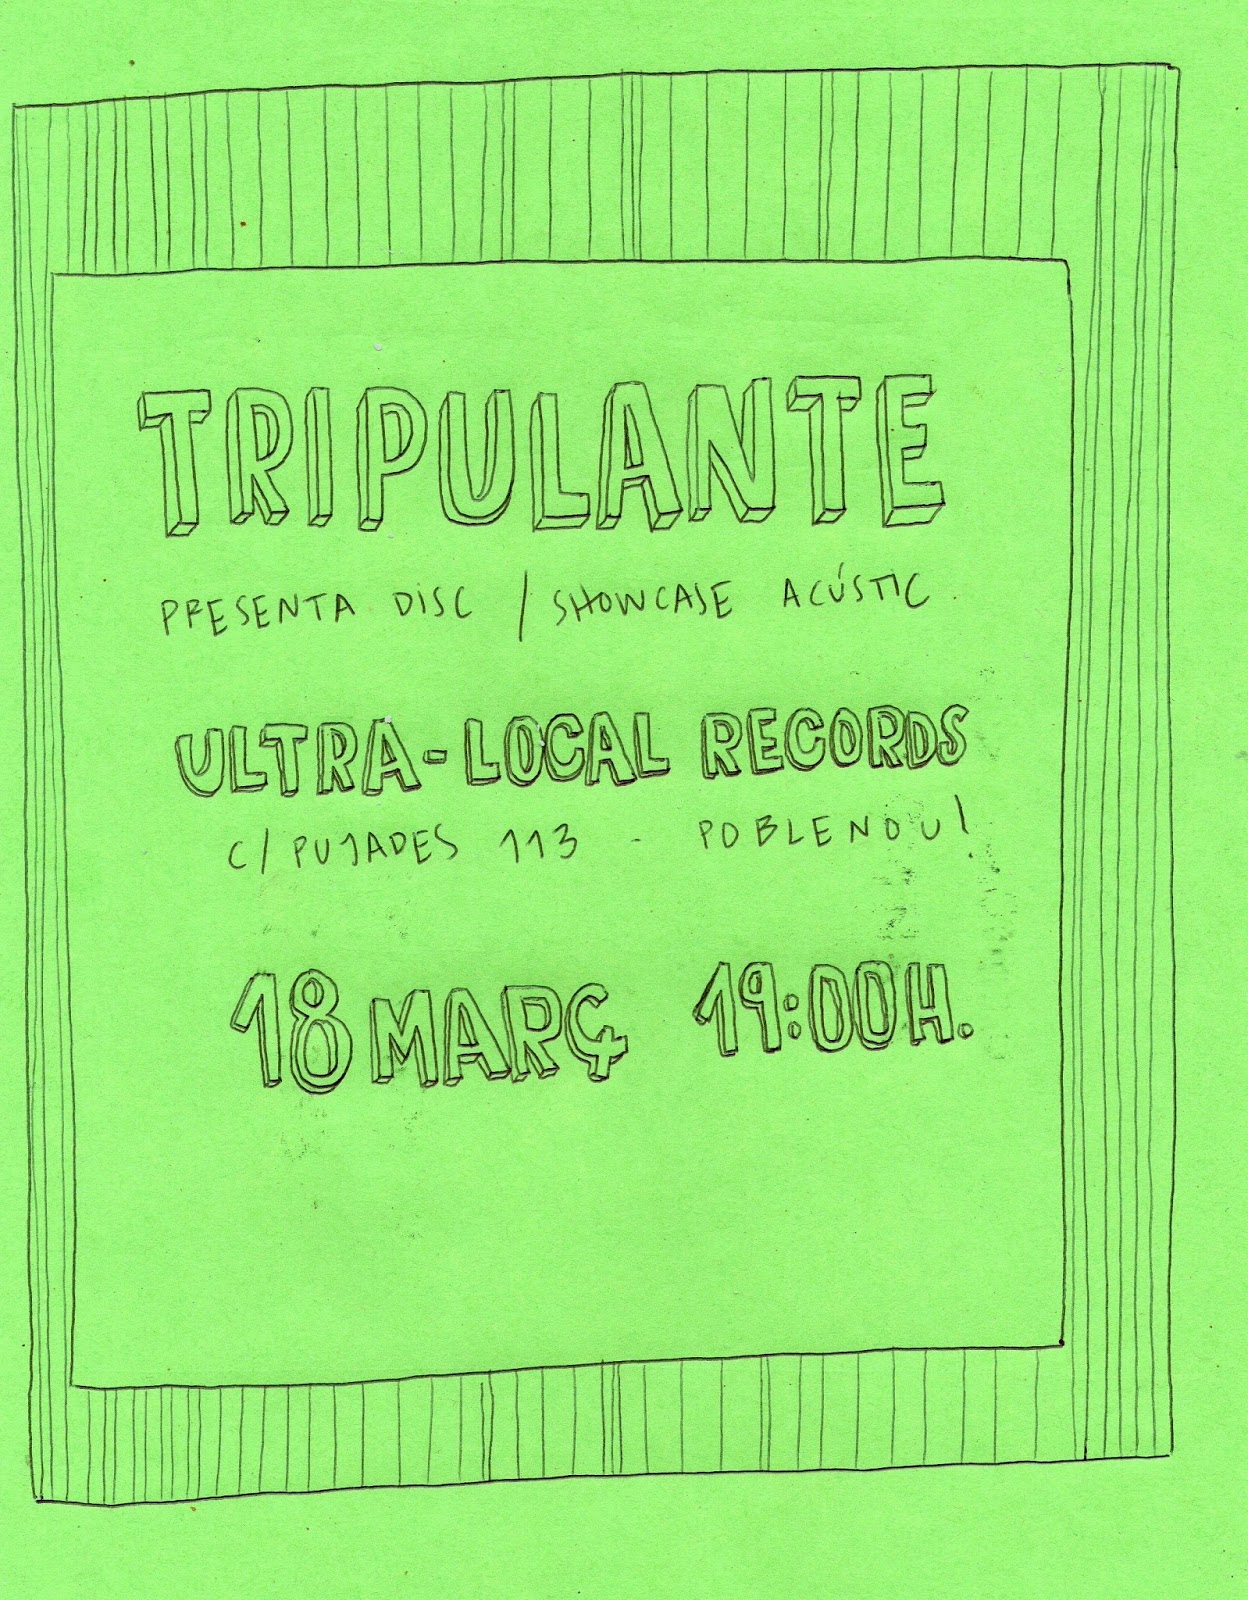 TRIPULANTE
PRESENTA DISC / SHOWCASE ACÚSTIC
ULTRA-LOCAL RECORDS
C/ PUJADES 113 - POBLENOU!
18 MARÇ 19:00H.